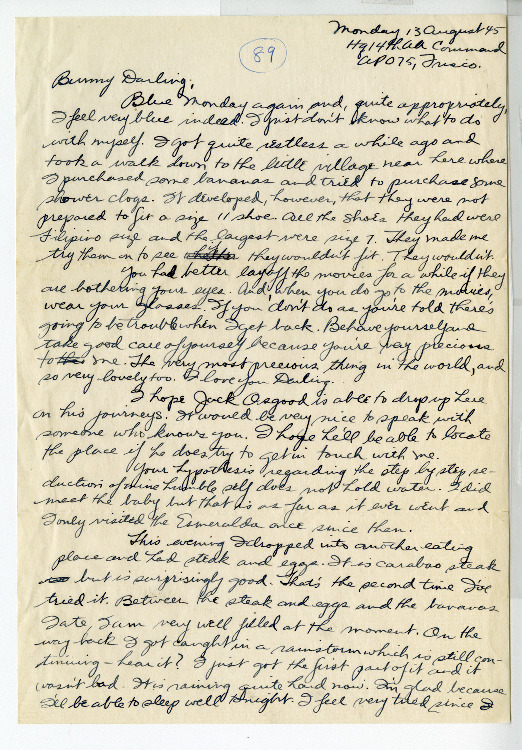 Monday 13 August 45
Hq 14th AA Command
APO 75, Frisco.
89
Bunny Darling,
Blue Monday again and, quite appropriately,
I feel very blue indeed. I just don't know what to do
with myself. I got quite restless a while ago and
took a walk down to the little village near here where
I purchased some bananas and tried to purchase some
shower clogs. It developed, however, that they were not
prepared to fit a size 11 shoe. All the shoes they had were
Filipino size and the largest were size 7. They made me
try them on to see if they wouldn't fit. They wouldn't.
You had better lay off the movies for a while if they
are bothering your eyes. And when you do go to the movies,
wear your glasses. If you don't do as you're told there's
going to be trouble when I get back. Behave yourself and
take good care of yourself because you're very precious
to me. The very most precious thing in the world, and
so very lovely too. I love you Darling.
I hope Jack Osgood is able to drop up here
on his journeys. It would be very nice to speak with
someone who knows you. I hope he'll be able to locate
the place if he does try to get in touch with me.
Your hypothesis regarding the step by step se-
duction of mine humble self does not hold water. I did
meet the baby but that is as far as it ever went and
I only visited the Esmeralda once since then.
This evening I dropped into another eating
place and had steak and eggs. It is carabao steak
but is surprisingly good. That's the second time I've
tried it. Between the steak and eggs and the bananas
I ate, I am very well filled at the moment. On the
way back I got caught in a rainstorm which is still con-
tinuing - hear it? I just got the first part of it and it
wasn't bad. It is raining quite hard now. I'm glad because
I'll be able to sleep well tonight. I feel very tired since I